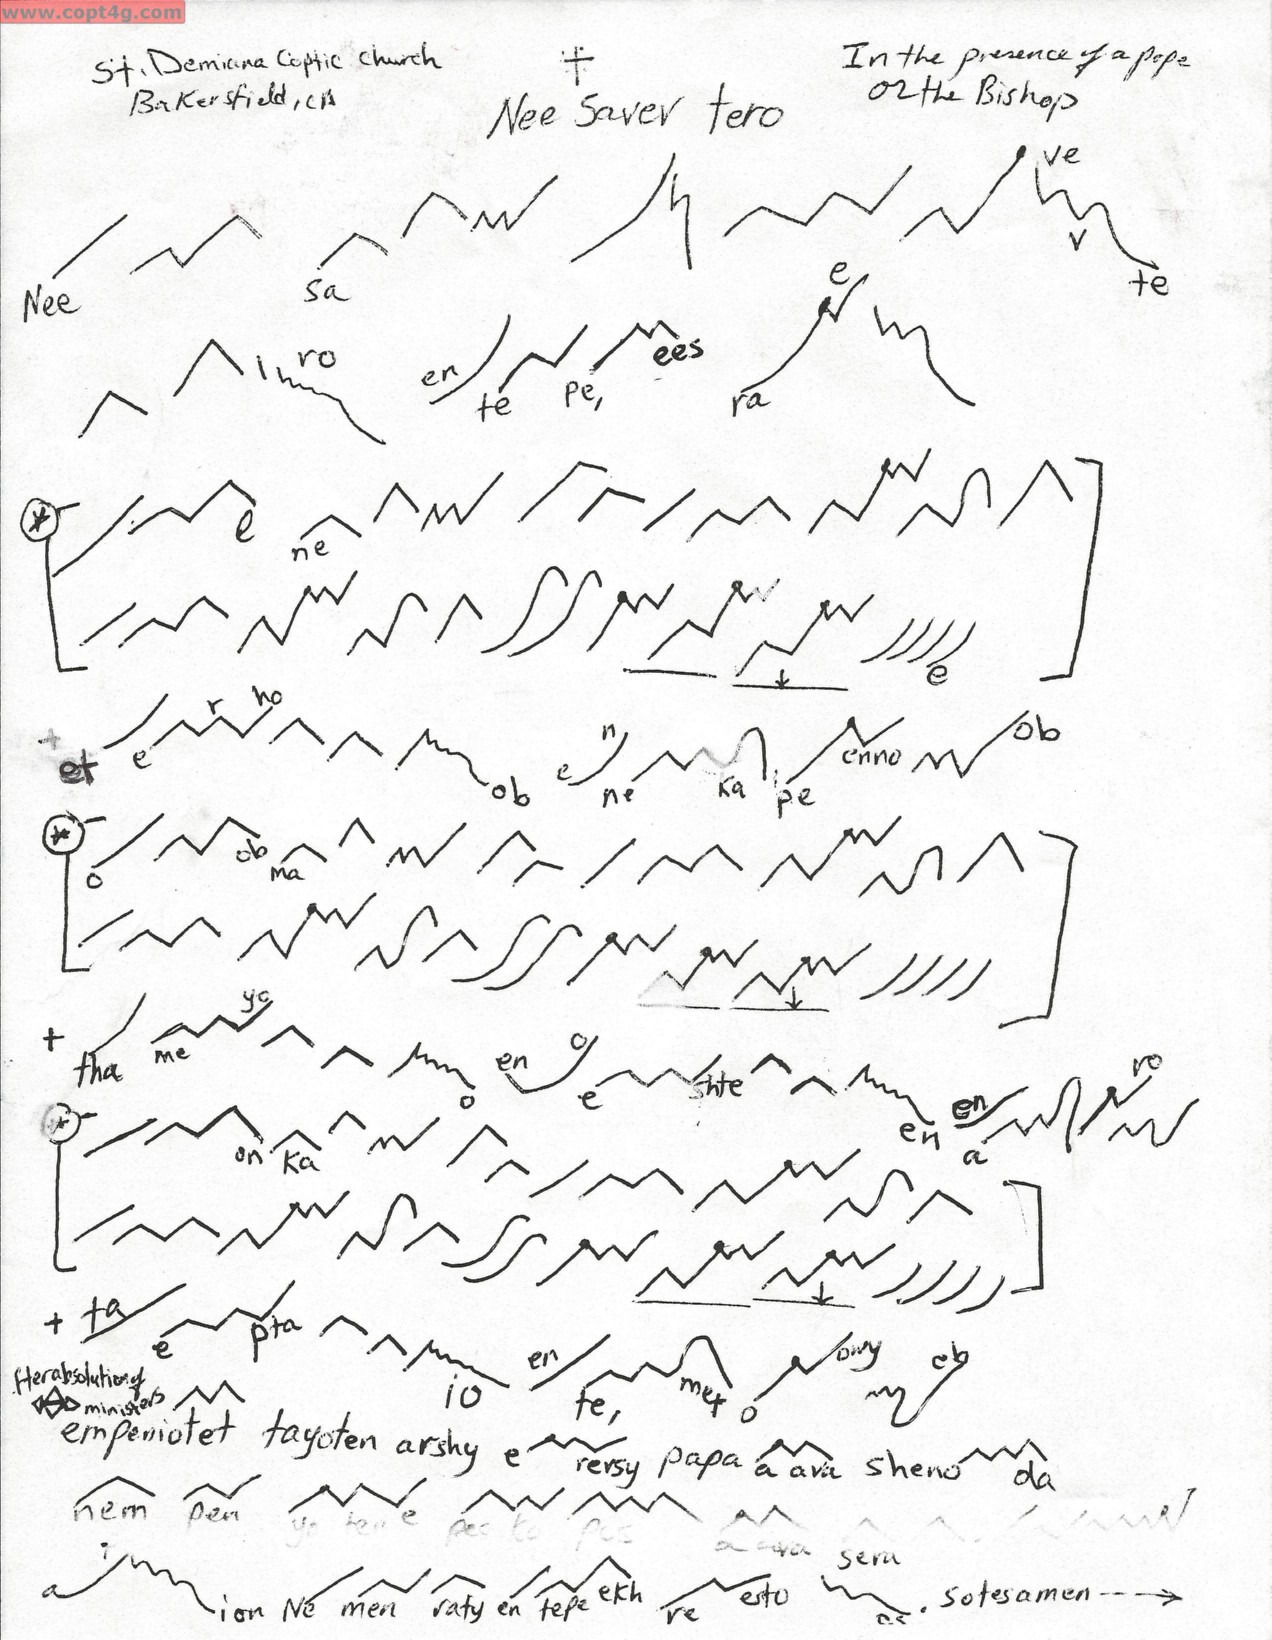 www.copt4g.com
St. Demiana Coptic Church
Bakersfield, CA
In the presence of a pope
or the Bishop
Nee Savev tero
Nee sa ve v te
ro en te pe, ees ra e
e ne
e
et e r ho ob e n ne ka pe enno ob
o ob ma
tha me yo o en o e shte en en a ro
on ka
ta e pta io en te, met o owy eb
absolution of
ministers
empeniotet tayoten arshy e rersy papa a ava sheno da
nem pen yo ten e pes ko pos a ava sera
a i ion Ne men raty en tepe ekh re esto es. sotesamen